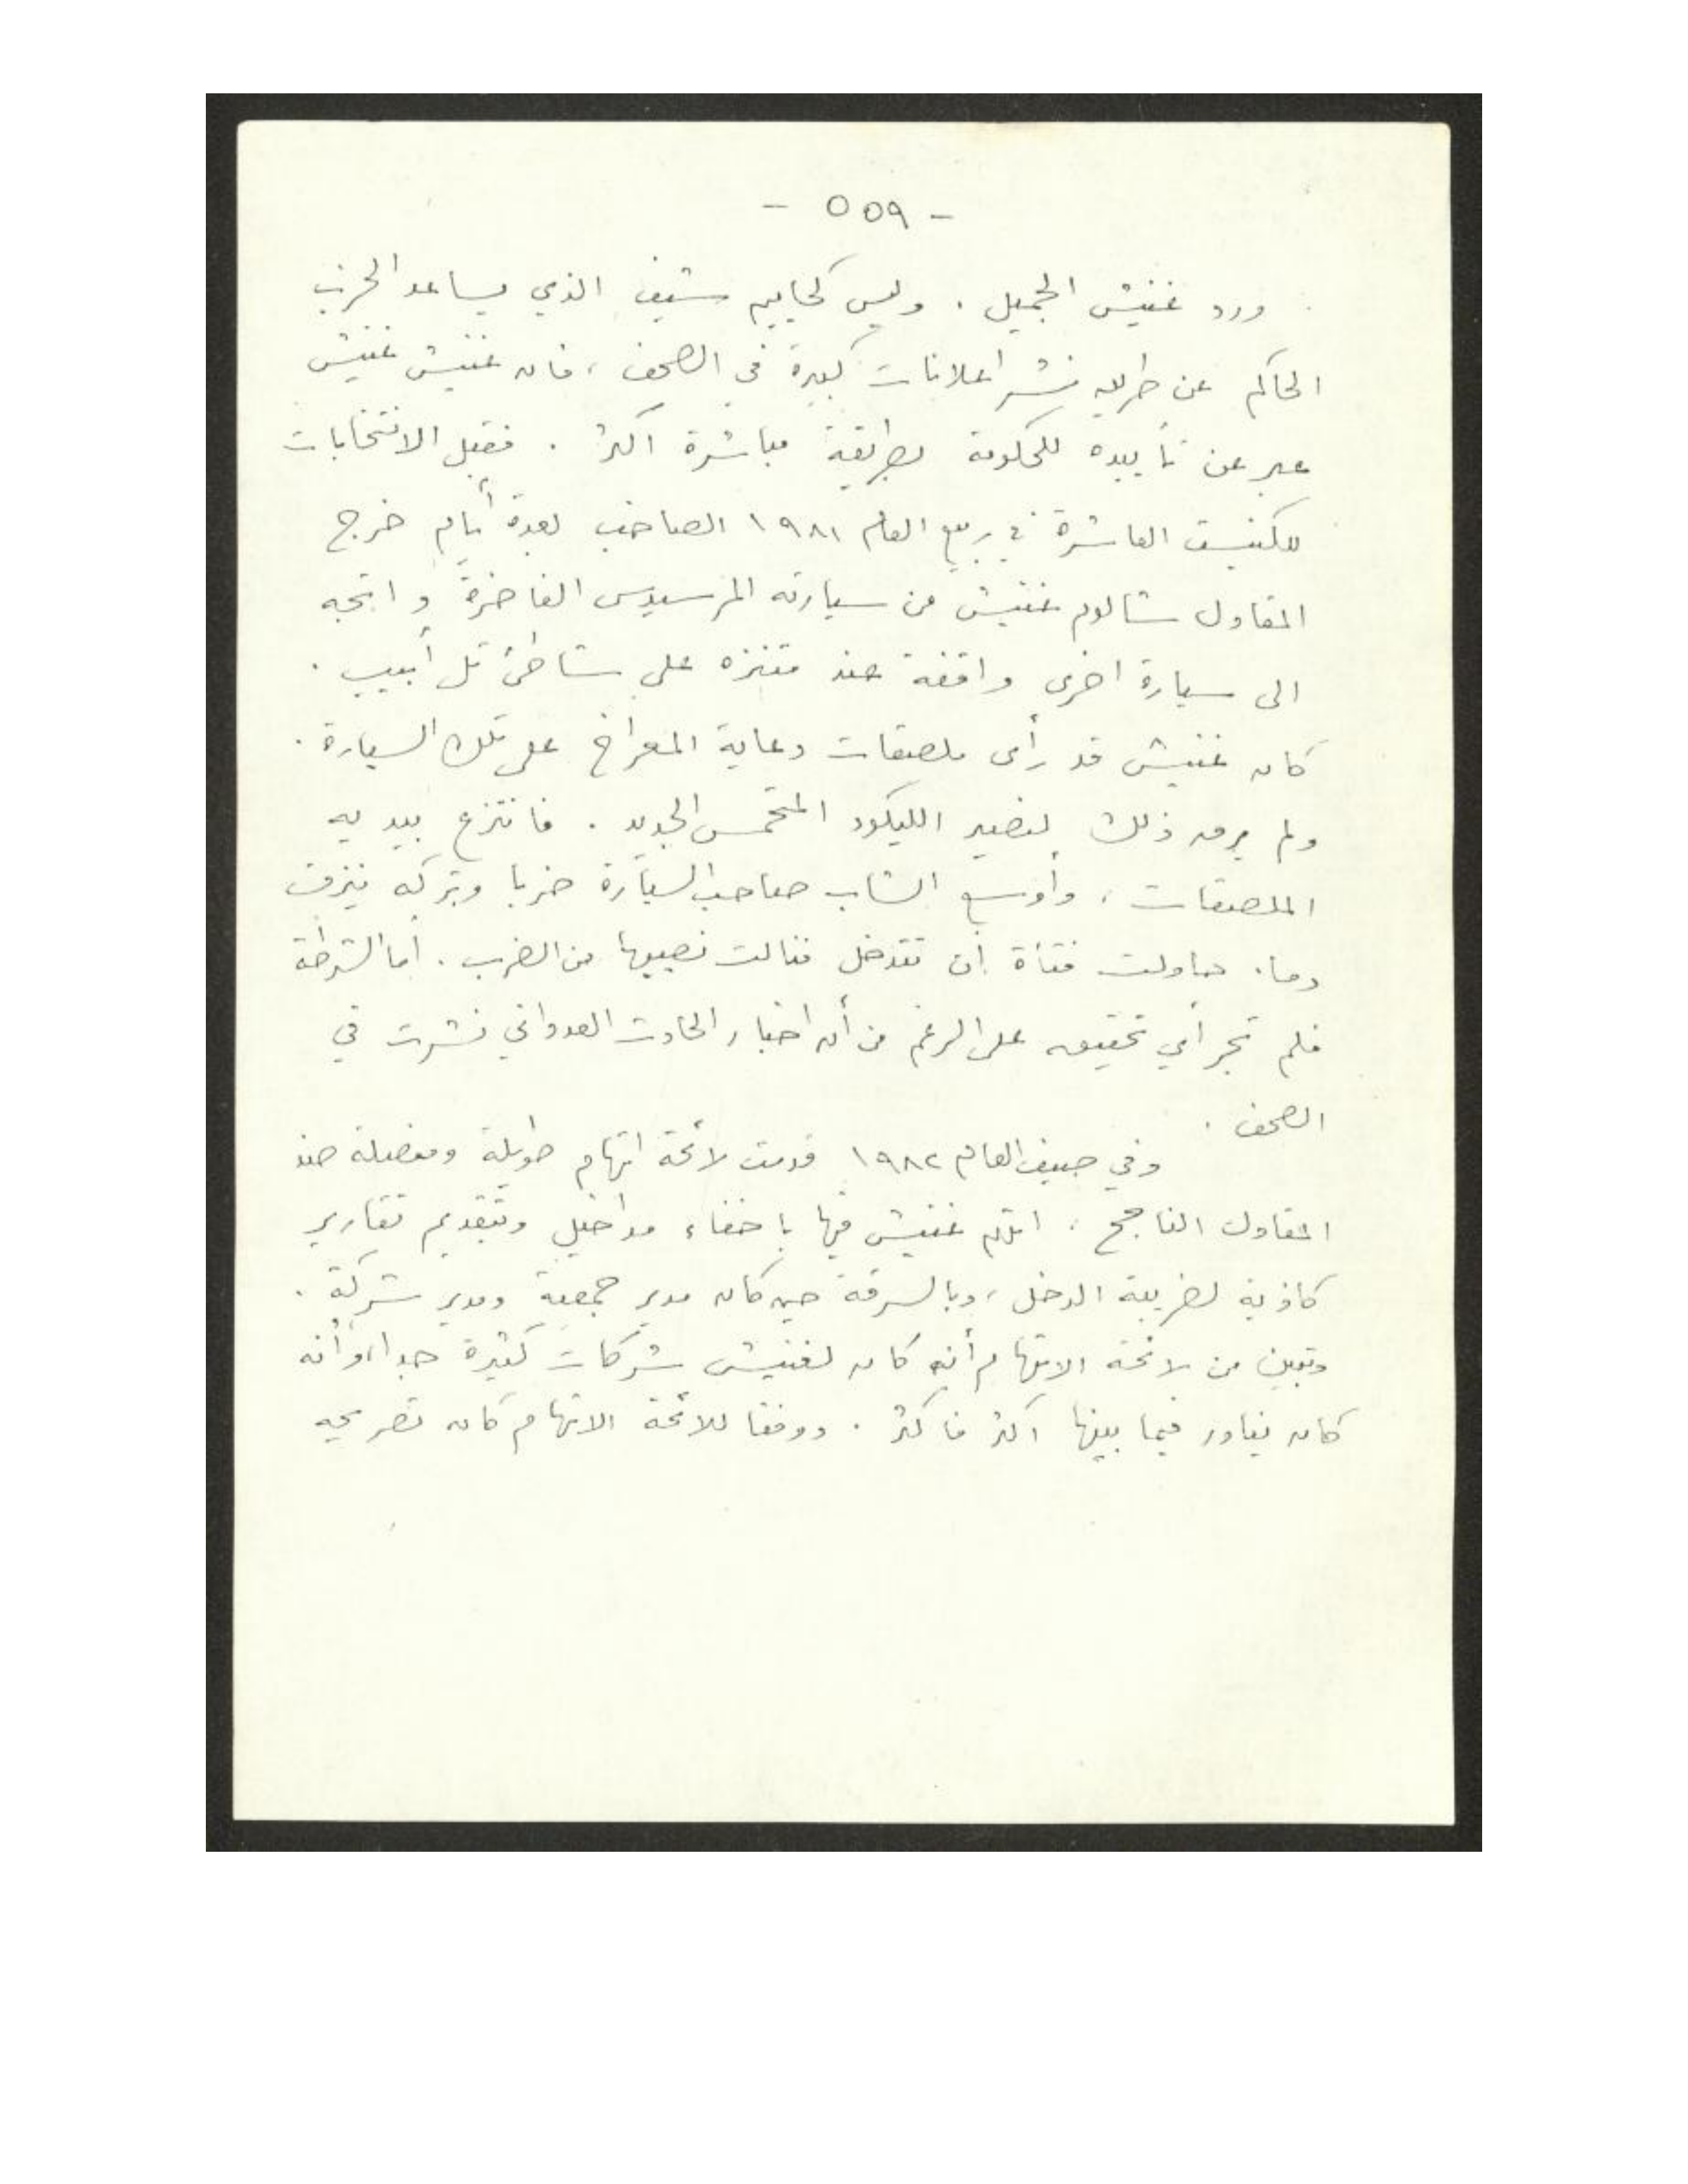 - ٥٥٩ -
ورد غنيش الجميل . وليس كحاييم شيف الذي يساعد الحزب
الحاكم عن طريق نشر اعلانات كبيرة في الصحف ، فان غنيش غنيش
عبر عن تأييده للحكومة بطريقة مباشرة اكثر . فقبل الانتخابات
للكنيست العاشرة في ربيع العام ١٩٨١ الصاخب بعدة أيام خرج
المقاول شالوم غنيش من سيارته المرسيدس الفاخرة واتجه
الى سيارة اخرى واقفة عند متنزه على شاطئ تل أبيب .
كان غنيش قد رأى ملصقات دعاية المعراخ على تلك السيارة .
ولم يرق ذلك لنصير الليكود المتحمس الجديد . فانتزع بيديه
الملصقات ، وأوسع الشاب صاحب السيارة ضربا وتركه ينزف
دما . حاولت فتاة أن تتدخل فنالت نصيبها من الضرب . أما الشرطة
فلم تجر أي تحقيق على الرغم من أن اخبار الحادث العدواني نشرت في
الصحف .
وفي صيف العام ١٩٨٢ قدمت لائحة اتهام طويلة ومفصلة ضد
المقاول الناجح ، اتهم غنيش فيها باخفاء مداخيل وبتقديم تقارير
كاذبة لضريبة الدخل ، وبالسرقة حين كان مدير جمعية ومدير شركة .
وتبين من لائحة الاتهام أنه كان لغنيش شركات كثيرة جدا ، وأنه
كان يناور فيما بينها اكثر فاكثر . ووفقا للائحة الاتهام كان تصريحه